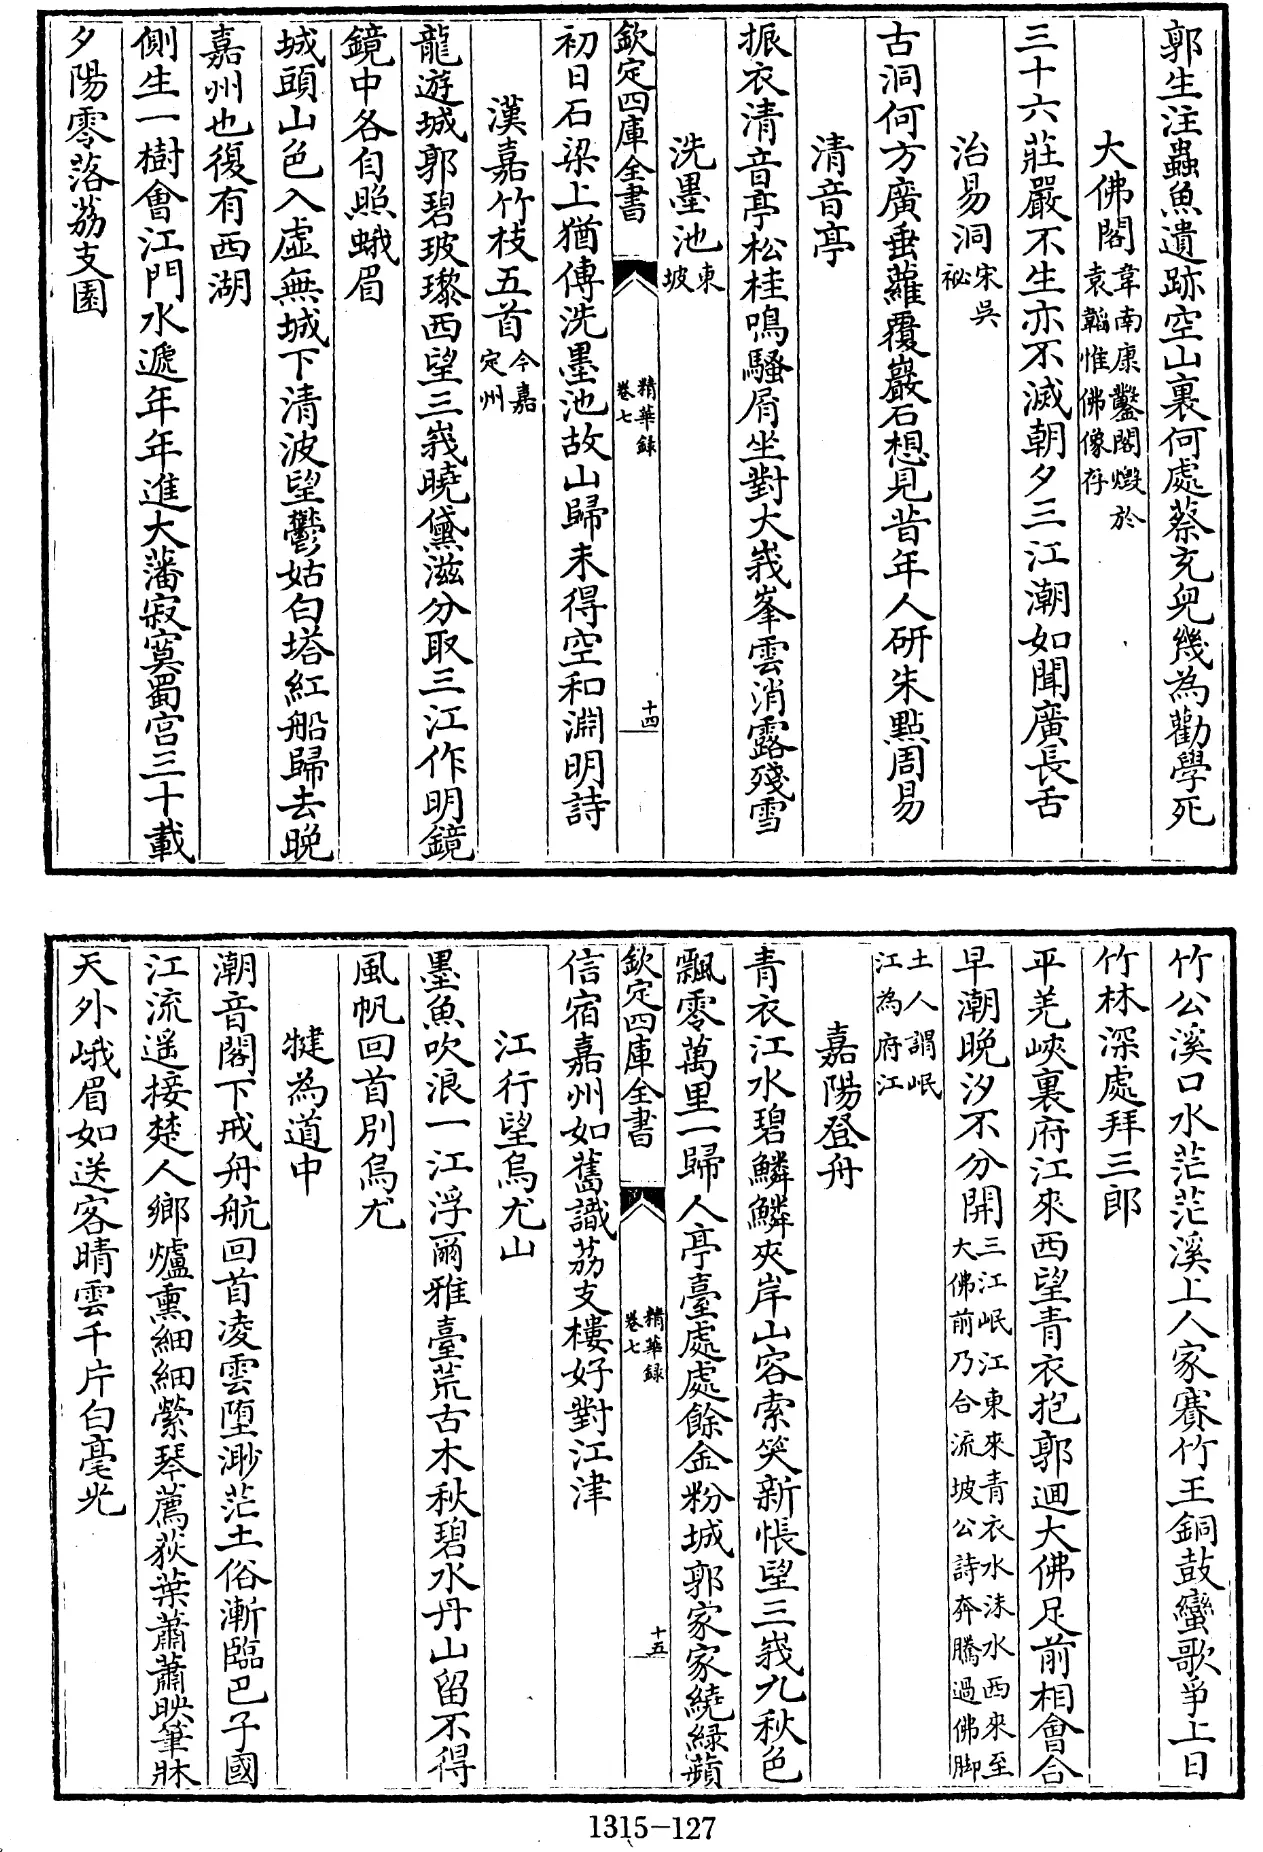 郭生注蟲魚遺跡空山裏何處蔡充兒幾為勸學死
大佛閣韋南康鑿閣燬於袁韜惟佛像存
三十六莊嚴不生亦不滅朝夕三江潮如聞廣長舌
治易洞宋吳祕
古洞何方廣垂蘿覆巖石想見昔年人研朱點周易
清音亭
振衣清音亭松桂鳴騷屑坐對大峩峯雲消露殘雪
洗墨池東坡
欽定四庫全書
精華錄
卷七
十四
初日石梁上猶傳洗墨池故山歸未得空和淵明詩
漢嘉竹枝五首今嘉定州
龍遊城郭碧玻瓈西望三峩曉黛滋分取三江作明鏡
鏡中各自照蛾眉
城頭山色入虛無城下清波望鬱姑白塔紅船歸去晚
嘉州也復有西湖
側生一樹會江門水遞年年進大藩寂寞蜀宮三十載
夕陽零落荔支園
竹公溪口水茫茫溪上人家賽竹王銅鼓蠻歌爭上日
竹林深處拜三郎
平羌峽裏府江來西望青衣抱郭迴大佛足前相會合
早潮晚汐不分開三江岷江東來青衣水沫水西來至大佛前乃合流坡公詩奔騰過佛脚
土人謂岷江為府江
嘉陽登舟
青衣江水碧鱗鱗夾岸山容索笑新悵望三峩九秋色
飄零萬里一歸人亭臺處處餘金粉城郭家家繞綠蘋
欽定四庫全書
精華錄
卷七
十五
信宿嘉州如舊識荔支樓好對江津
江行望烏尤山
墨魚吹浪一江浮爾雅臺荒古木秋碧水丹山留不得
風帆回首別烏尤
犍為道中
潮音閣下戒舟航回首凌雲墮渺茫土俗漸臨巴子國
江流遥接楚人鄉爐熏細細縈琴薦荻葉蕭蕭映筆牀
天外峨眉如送客晴雲千片白毫光
1315-127